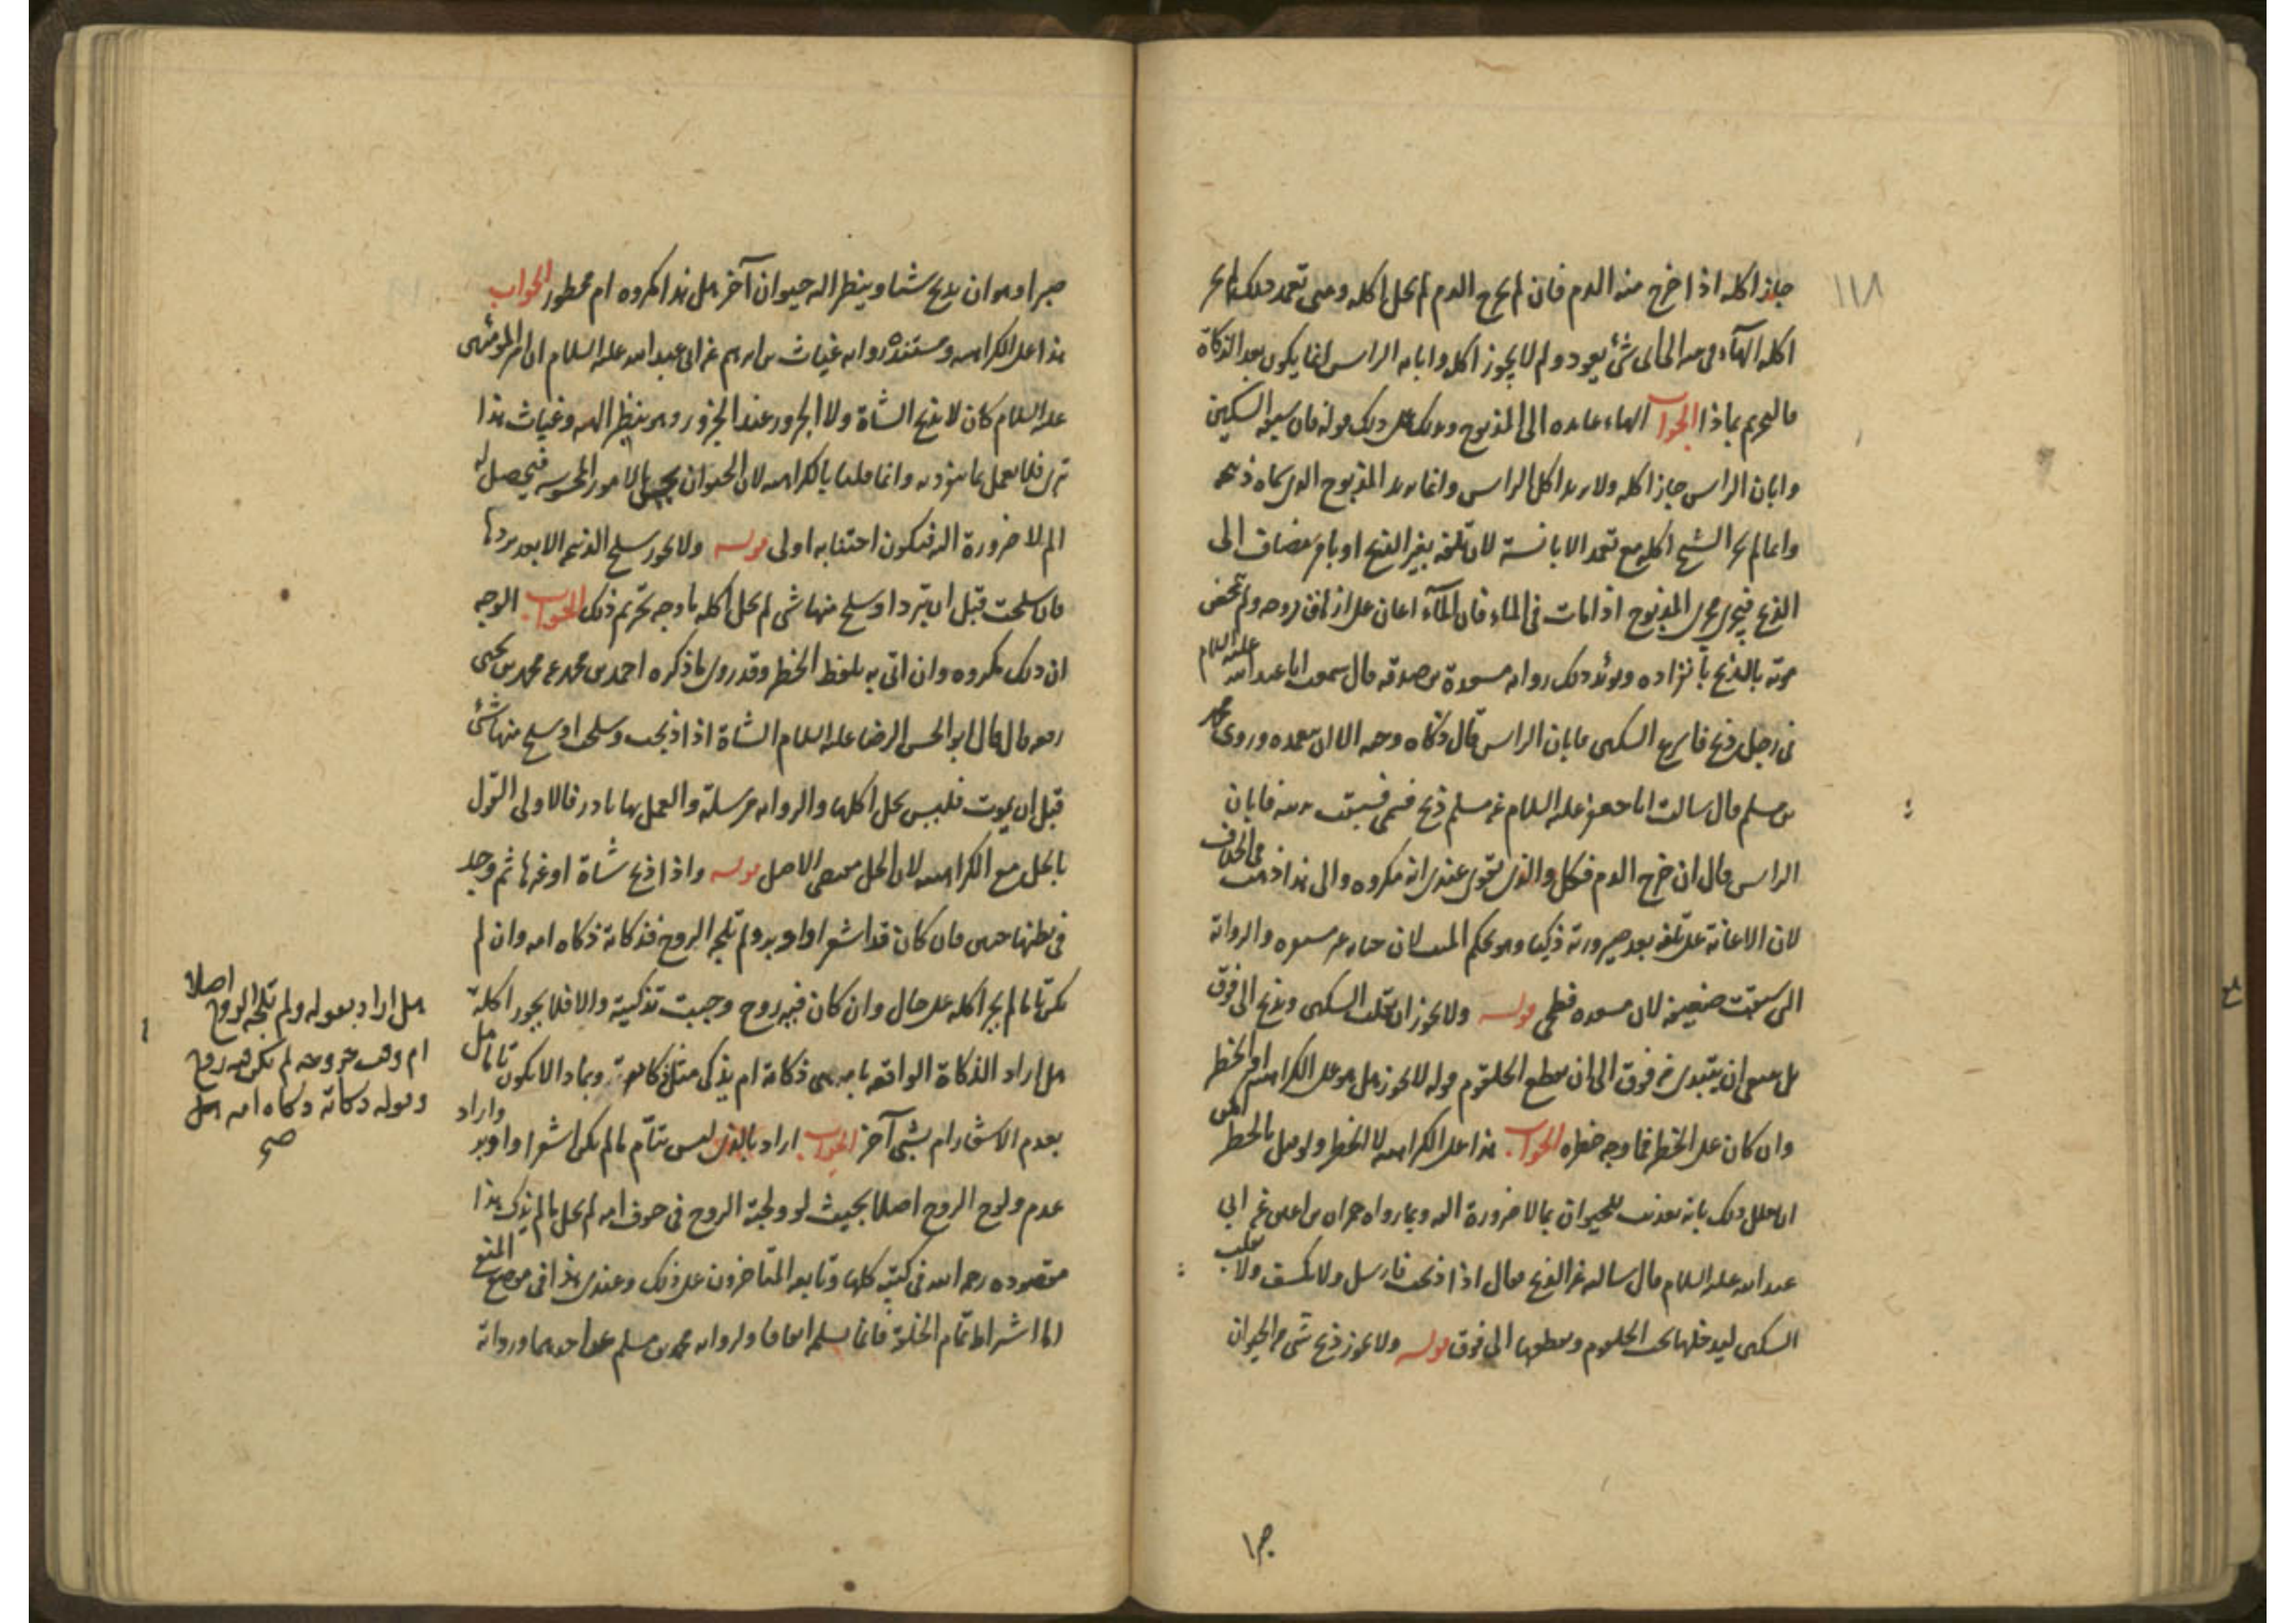 ١١٨
جاز اكله اذا خرج منه الدم فان لم يخرج الدم لم يحل اكله ومتى تعمد ذلك لم يجز
اكله الهآء في منه الى اى شئ يعود ولم لا يجوز اكله وابانه الراس انما يكون بعد الذكاة
فالتحريم بماذا الجواب الهاء عايده الى المذبوح وبدلك على ذلك قوله فان سبقه السكين
وابان الراس جاز اكله ولا يريد اكل الراس وانما يريد المذبوح الذى كماه ذبحه
وانما لم يجز الشيخ اكله مع تعمد الابانة لان تلفه بغير الذبح او بامر مضاف الى
الذبح فيجرى مجرى المذبوح اذا مات في الماء فان المآء اعان على ازهاق روحه ولم تمحض
موته بالذبح بانفراده ويؤيد ذلك روايه مسعدة بن صدقه قال سمعت ابا عبد الله عليه السلام
فى رجل ذبح فاسرع السكين فابان الراس فقال ذكاه وحيه الا ان يتعمده وروى محمد
بن مسلم قال سالت ابا جعفر عليه السلام عن مسلم ذبح فسمى فسبقت مديته فابان
الراس قال ان خرج الدم فكل والذى يقوى عندى انه مكروه والى هذا ذهب فى الخلاف
لان الاعانة على تلفه بعد صيرورته ذكيا وهو بحكم الميت لان حياته غير مستقره والرواية
التى سبقت ضعيفه لان مسعده فطحى قوله ولا يجوز ان يقلب السكين ويذبح الى فوق
هل معنى ان يبتدى من فوق الى ان يقطع الحلقوم قوله لا يجوز هل هو على الكراهية او الحظر
وان كان على الحظر فما وجه حظره الجواب هذا على الكراهية لا الحظر ولو قيل بالحظر امكن
ان يعلل ذلك بانه تعذيب للحيوان بما لا ضرورة اليه وبما رواه حمران بن اعين عن ابى
عبد الله عليه السلام قال سالته عن الذبح فقال اذا ذبحت فارسل ولا تكتف ولا تقلب
السكين ليدخلها تحت الحلقوم ويقطعها الى فوق قوله ولا يجوز ذبح شئ من الحيوان
صبرا وهو ان يذبح شيئا وينظر اليه حيوان آخر هل هذا مكروه ام محظور الجواب
هذا على الكراهية ومستنده روايه غياث بن ابرهيم عن ابى عبد الله عليه السلام ان امير المؤمنين
عليه السلام كان لا يذبح الشاة عند الشاة ولا الجزور عند الجزور وهو ينظر اليه وغياث هذا
بترى فلا يعمل بما ينفرد به وانما قلنا بالكراهية لان الحيوان يحس بالامور المحسوسه فيحصل له
الم لا ضرورة اليه فيكون اجتنابه اولى قوله ولا يجوز سلخ الذبيحه الا بعد بردها
فان سلخت قبل ان تبرد او سلخ منها شى لم يحل اكله ما وجه تحريم ذلك الجواب الوجه
ان ذلك مكروه وان اتى به بلفظ الحظر وقد روى ما ذكره احمد بن محمد عن محمد بن يحيى
رفعه قال قال ابو الحسن الرضا عليه السلام الشاة اذا ذبحت وسلخت او سلخ منها شئ
قبل ان يموت فليس يحل اكلها والروايه مرسلة والعمل بها نادر فالاولى القول
بالحل مع الكراهية لان الحل مقتضى الاصل قوله واذا ذبح شاة او غيرها ثم وجد
فى بطنها جنين فان كان قد اشعر او اوبر ولم تلجه الروح فذكاته ذكاه امه وان لم
يكن تاما لم يجز اكله على حال وان كان فيه روح وجبت تذكيته والا فلا يجوز اكله
هل اراد الذكاة الواقعه بامه هى ذكاته ام يذكى مثل ذكاتها وبماذا لا يكون تاما هل
بعدم الاشعار ام بشئ آخر الجواب اراد بالذى ليس بتام ما لم يكن اشعر او اوبر واراد
عدم ولوج الروح اصلا بحيث لو ولجته الروح فى جوف امه لم يحل ما لم يذك هذا
مقصوده رحمه الله فى كتبه كلها وتابعه المتاخرون على ذلك وعندى هذا فى موضع المنع
اما اشتراط تمام الخلقة فانما يسلم اتفاقا ولروايه محمد بن مسلم عن احدهما ورواية
هل اراد بقوله ولم تلجه الروح اصلا
ام وقت خروجه لم يكن فيه روح
وقوله ذكاته ذكاه امه هل
صح